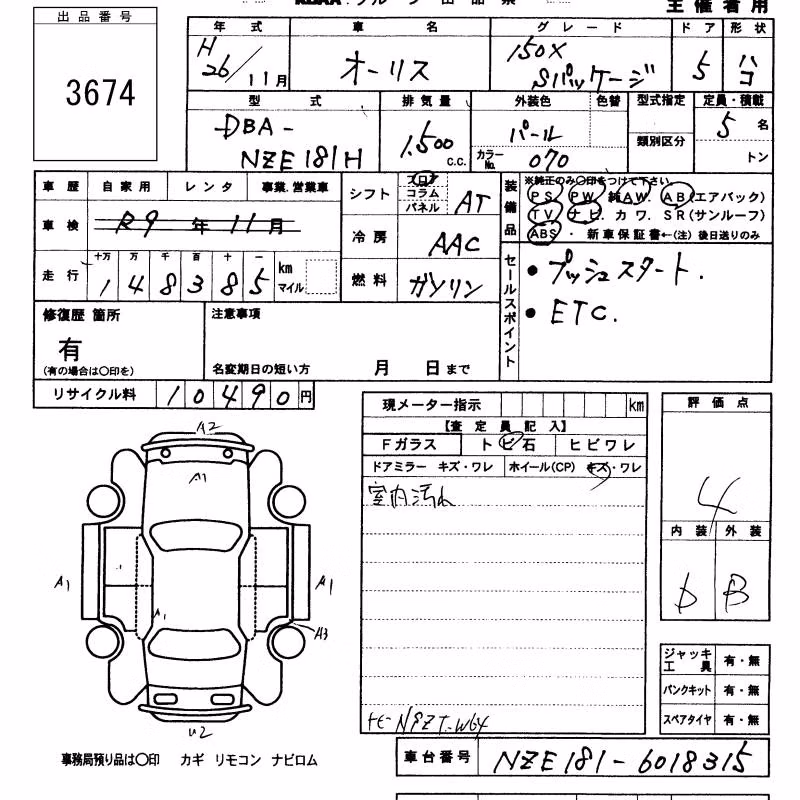 出品番号
3674
主催者用
年式 車名 グレード ドア 形状
H26/11月 オーリス 150X Sパッケージ 5 ハコ
型式 排気量 外装色 色替 型式指定 定員・積載
類別区分
DBA-NZE181H 1,500 c.c. パール カラーNo. 070 5名
トン
車歴 自家用 レンタ 事業.営業車
車検 R9年11月
シフト フロ コラム パネル AT
冷房 AAC
燃料 ガソリン
走行 十万 万 千 百 十 一
148385 km マイル
装備品 ※純正のみ○印をつけて下さい。
PS. PW. 純AW. AB(エアバック)
TV. ナビ. カワ. SR(サンルーフ)
ABS ・ 新車保証書←(注) 後日送りのみ
セールスポイント
• プッシュスタート.
• ETC.
修復歴 箇所
有
(有の場合は○印を)
注意事項
名変期日の短い方 月 日まで
リサイクル料 10490円
現メーター指示 km
【査定員記入】
Fガラス トビ石 ヒビワレ
ドアミラー キズ・ワレ ホイール(CP) キズ・ワレ
室内汚れ
評価点
4
内装 外装
D B
A2
A1
A1
A1
A1
A3
U2
ジャッキ工具 有・無
パンクキット 有・無
スペアタイヤ 有・無
事務局預り品は○印 カギ リモコン ナビロム
車台番号 NZE181-6018315